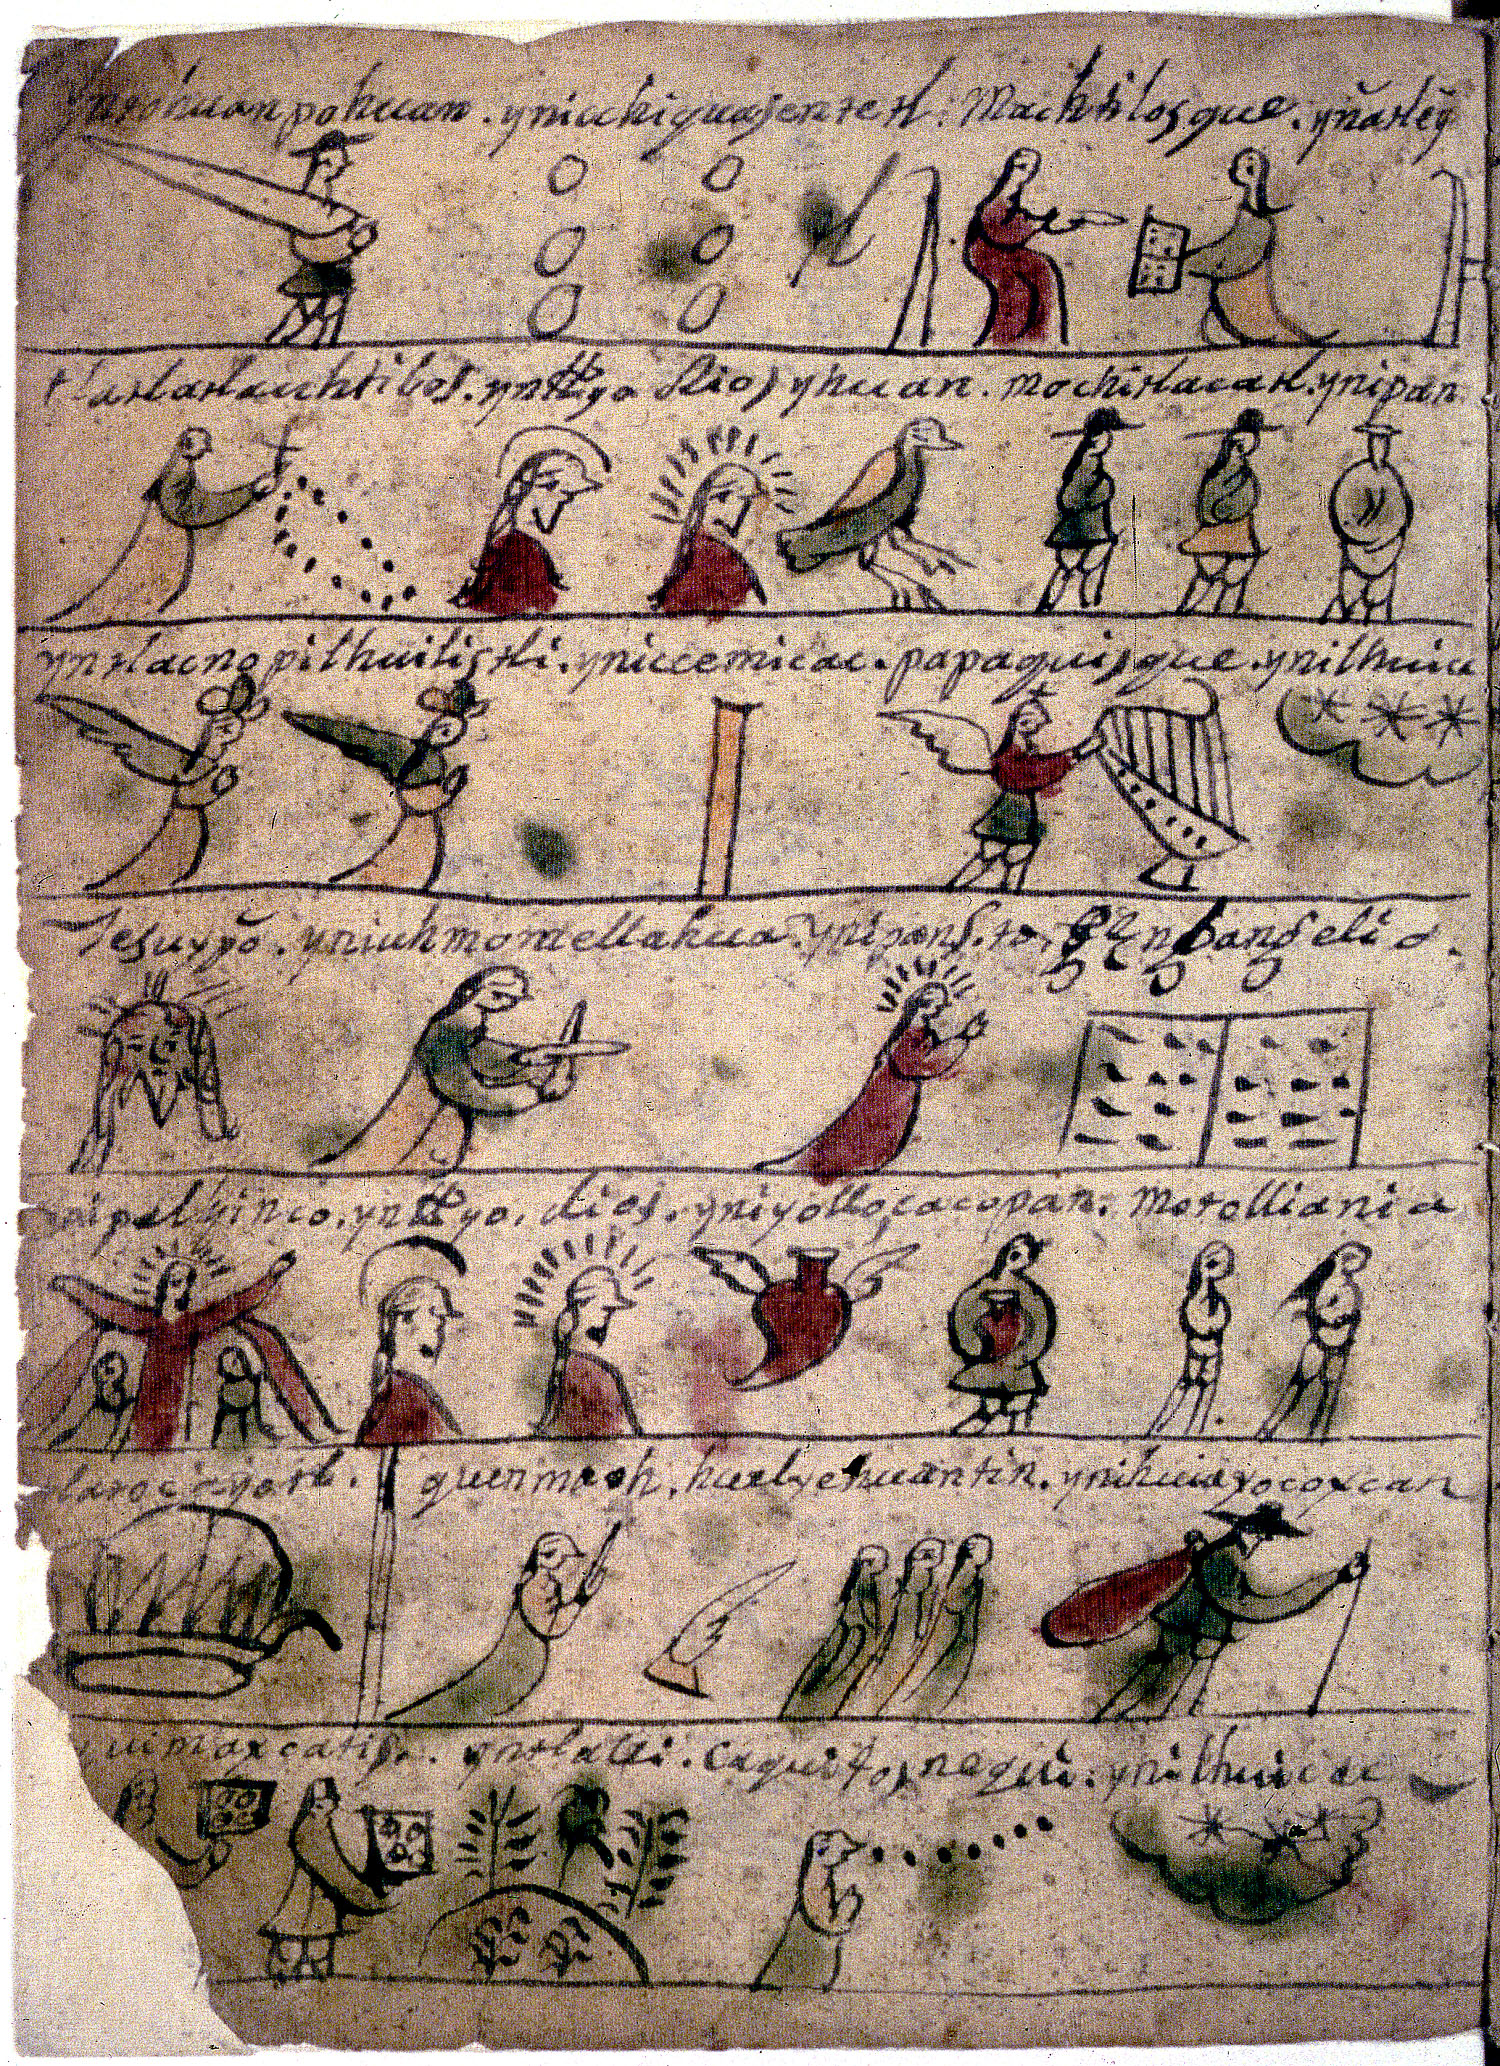 ynichiquasentetl. Machtilosque. ynatley
tlatlatlauchtilos. yntt̄o Dios yhuan. mochitlacatl. ynipan
yntlacnopilhuilistli. yniccemicac. papaquisque. ynilhuica
Jesuxpō. yniuhmomellahua. ynipan S.to Ebangelio.
yntt̄yo. dios. yniyollocacopan. motolliania
quenmach. huelyehuantin. ynihuiayocoxcan
yntlalli. caquitosnequi. ynilhuicac